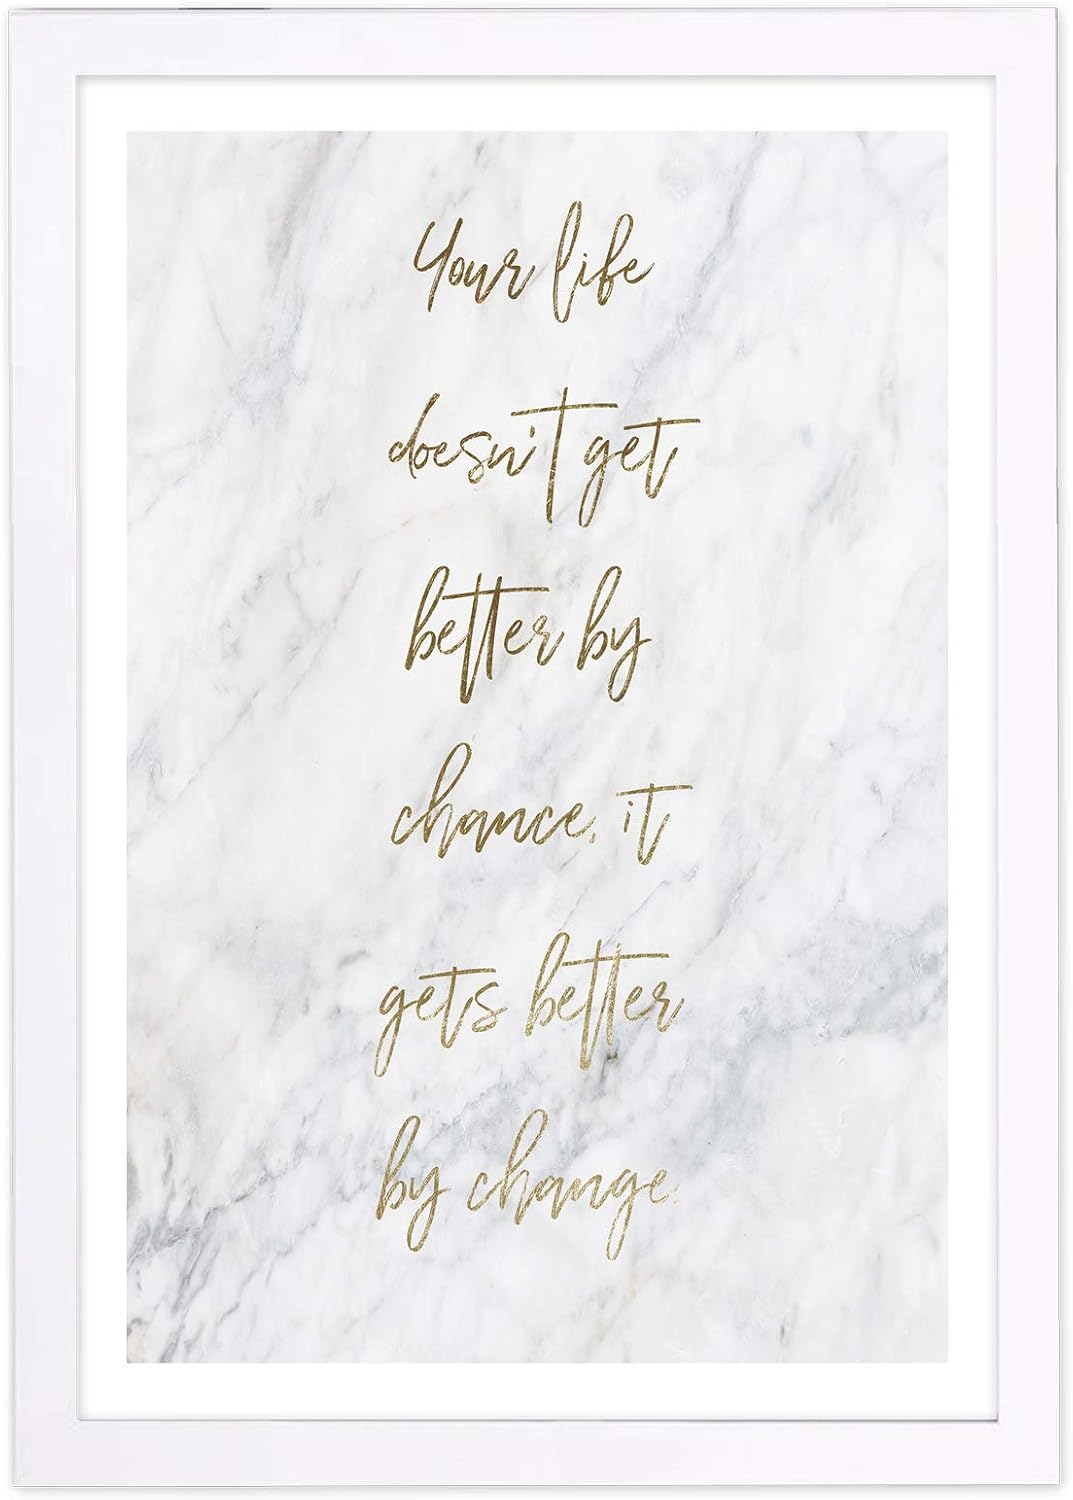 Your life
doesn't get
better by
chance, it
gets better
by change.